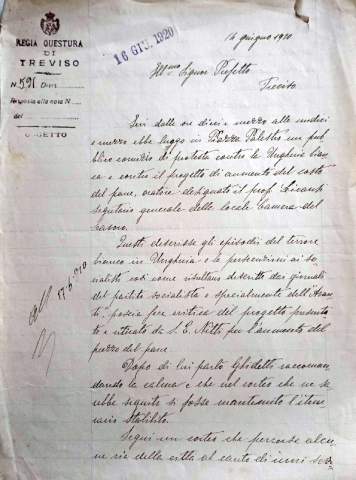 REGIA QUESTURA
DI
TREVISO
N. 521 Div.
Risposta alla nota N
del
OGGETTO
16 GIU. 1920
16 giugno 1920
Ill.mo Signor Prefetto
Treviso
Ieri dalle ore dieci e mezzo alle undici
e mezzo ebbe luogo in Piazza Palestro un pub
blico comizio di protesta contro la Ungheria bian
ca e contro il progetto di aumento del costo
del pane, oratore designato il prof.
segretario generale della locale Camera del
lavoro.
Questi descrisse gli episodi del terrore
bianco in Ungheria e le persecuzioni ai so
cialisti così come risultano descritti dai giornali
del partito socialista e specialmente dell'Avan
ti, poscia fece critica del progetto presenta
to e ritirato da S. E. Nitti per l'aumento del
prezzo del pane.
Dopo di lui parlò Ghidetti raccoman
dando la calma e che nel corteo che ne sa
rebbe seguito si fosse mantenuto l'itine
rario stabilito.
Seguì un corteo che percorse alcu
ne vie della città al canto di inni sov
17.6.920